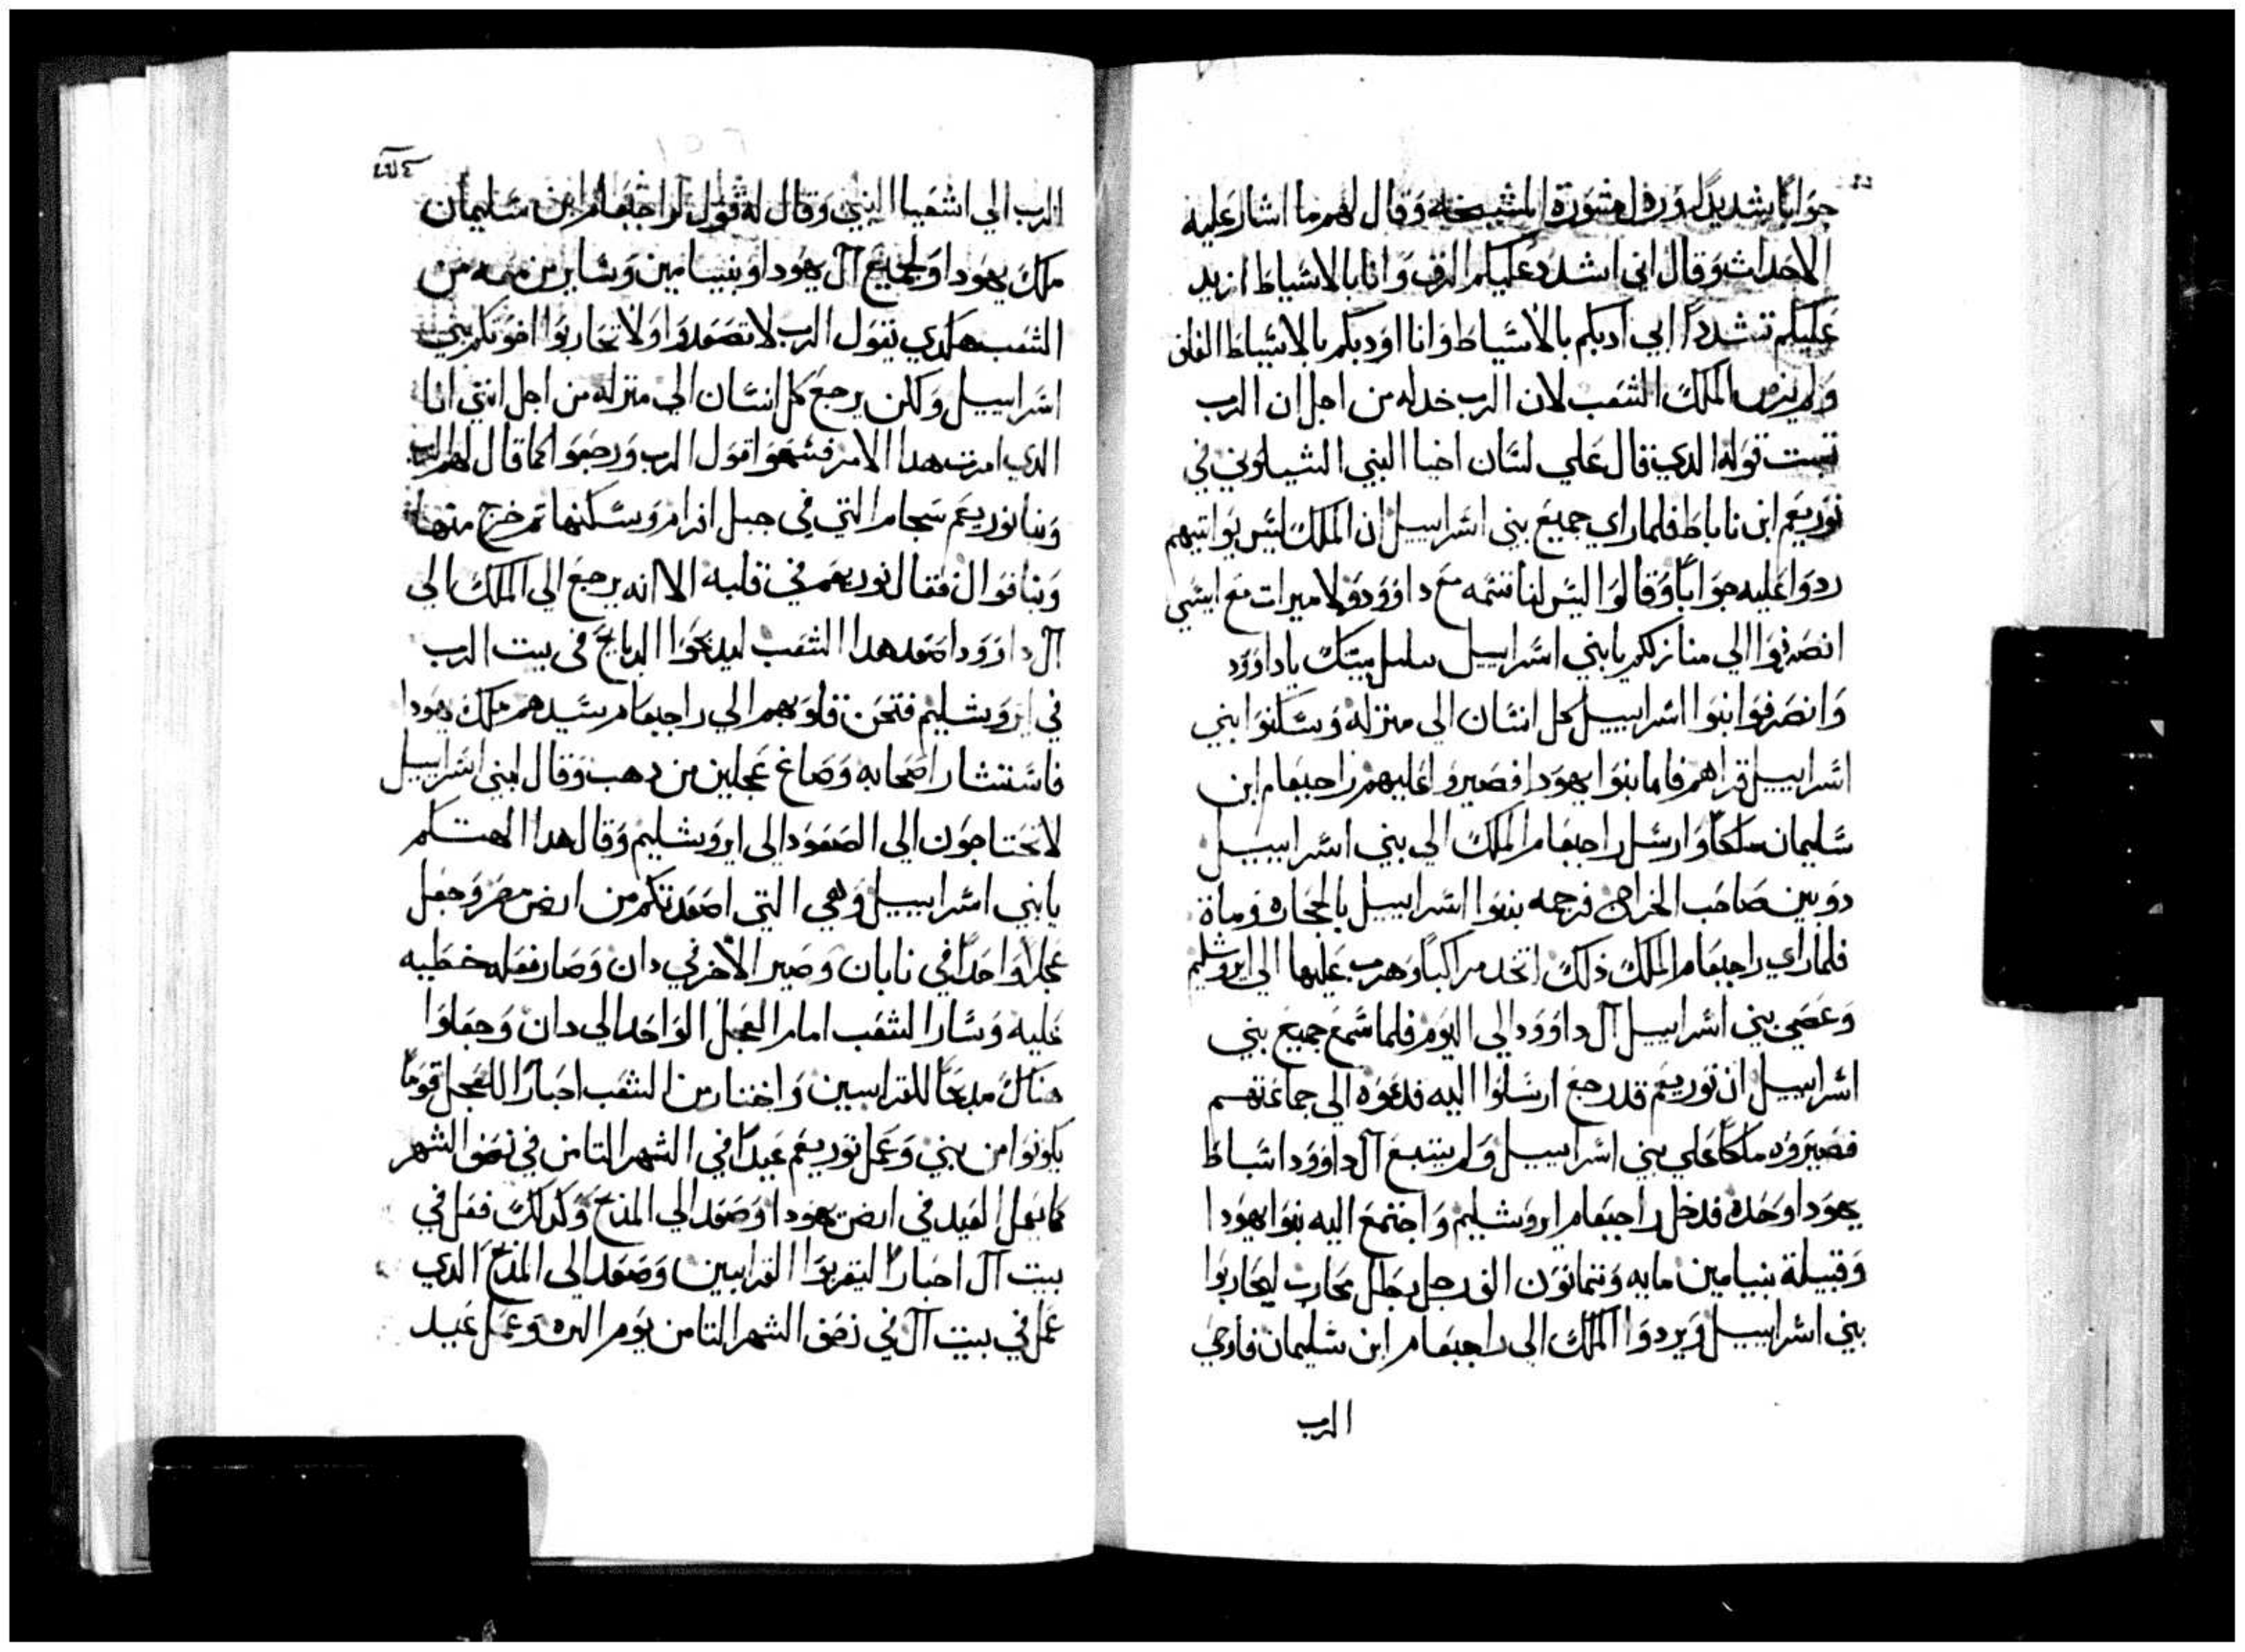 جوابًا شديدًا ورفل مشورة المشيخه وقال لهم ما اشار عليه
الاحداث وقال اني اشدد عليكم النرف وانا بالاسياط ازيد
عليكم تشددًا ابي ادبكم بالاسياط وانا اودبكم بالاسياط
ولم الملك الشعب لان الرب خدله من اجل ان الرب
تبت قوله الدي قال علي لسان اخيا النبي الشيلوني في
نوربعم ابن ناباط فلما راي جميع بني اسراييل ان الملك ليس يواتيهم
ردوا عليه جوابًا وقالوا ليس لنا قسمه مع داوود ولا ميرات مع ايسي
انصرفوا الي منازلكم يا بني اسراييل بيتك يا داوود
وانصرفوا بنوا اسراييل كل انسان الي منزله وسكنوا بني
اسراييل قراهم فاما بنوا يهودا فصيروا عليهم راحبعام ابن
سليمان ملكًا وارسل راحبعام الملك الي بني اسراييل
دوبين صاحب الخراج فرجمه بنوا اسراييل بالحجاره ومات
فلما راي راحبعام الملك ذلك اتخد مراكبًا وهرب عليها الي ايروشليم
وعصي بني اسراييل آل داوود الي اليوم فلما سمع جميع بني
اسراييل ان نوربعم قد رجع ارسلوا اليه فدعوه الي جماعتهم
فصيروه ملكًا علي بني اسراييل ولم يتبع آل داوود اسباط
يهودا وحده فدخل راحبعام ايروشليم واجتمع اليه بنوا يهودا
وقبيلة بنيامين مايه وتمانون الف رجل بطل محارب ليحاربوا
بني اسراييل ويردوا الملك الي راحبعام ابن سليمان فاوحي
الرب
الرب الي اشعيا النبي وقال له قول لراحبعام ابن سليمان
ملك يهودا ولجميع آل يهودا وبنيامين وساير من معه من
الشعب هكدي يقول الرب لا تصعدوا ولا تحاربوا اخوتكم بني
اسراييل ولكن يرجع كل انسان الي منزله من اجل انني انا
الدي امرت هدا الامر فسمعوا قول الرب ورجعوا كما قال لهم الرب
وبنا نوربعم سجام التي في جبل افرام وسكنها تم خرج منها
وبنا فنوال فقال نوربعم في قلبه الا انه يرجع الي الملك الي
آل داوود اصعد هدا الشعب ليدبحوا الدبايح في بيت الرب
في ايروشليم فتحن قلوبهم الي راحبعام سيدهم ملك يهودا
فاستشار اصحابه وصاغ عجلين من دهب وقال لبني اسراييل
لا تحتاجون الي الصعود الي ايروشليم وقال هدا الهتكم
يا بني اسراييل وهي التي اصعدتكم من ارض مصر وجعل
عجلًا واحدًا في نابان وصير الاخر في دان وصار فعله خطيه
عليه وسار الشعب امام العجل الواحد الي دان وجعلوا
هناك مدبحًا للقرابين واختار من الشعب احبارًا للعجل قومًا
يكونوا من بني وعمل نوربعم عيدًا في الشهر التامن في نصف الشهر
كما يعمل العيد في ارض يهودا وصعد الي المدبح وكدلك فعل في
بيت آل احبارًا ليقربوا القرابين وصعد الي المدبح الدي
عمل في بيت آل في نصف الشهر التامن يوم الره وعمل عيد